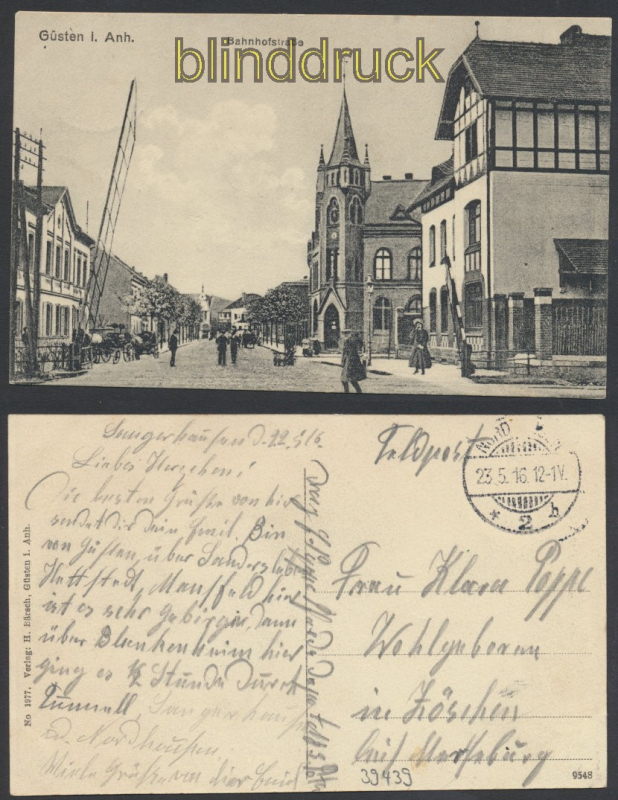 Güsten i. Anh.
Bahnhofstraße
blinddruck
Sangerhausen d. 22.5.16.
Liebes Herzchen!
Die besten Grüße von hier
sendet dir dein Emil. Bin
von Güsten, über Sandersleben
Hettstedt, Mansfeld hier
ist es sehr gebirgig, dann
über Blankenheim hier
ging es ½ Stunde durch
Tunnell, Sangerhausen
Nordhausen.
Viele Grüße von hier
Feldpost
23.5.16.12-1V.
* 2 b
Frau Klara Poppe
Wohlgeboren
in Zöschen
bei Merseburg
39439
9548
No 1977. Verlag: H. Bärsch, Güsten i. Anh.